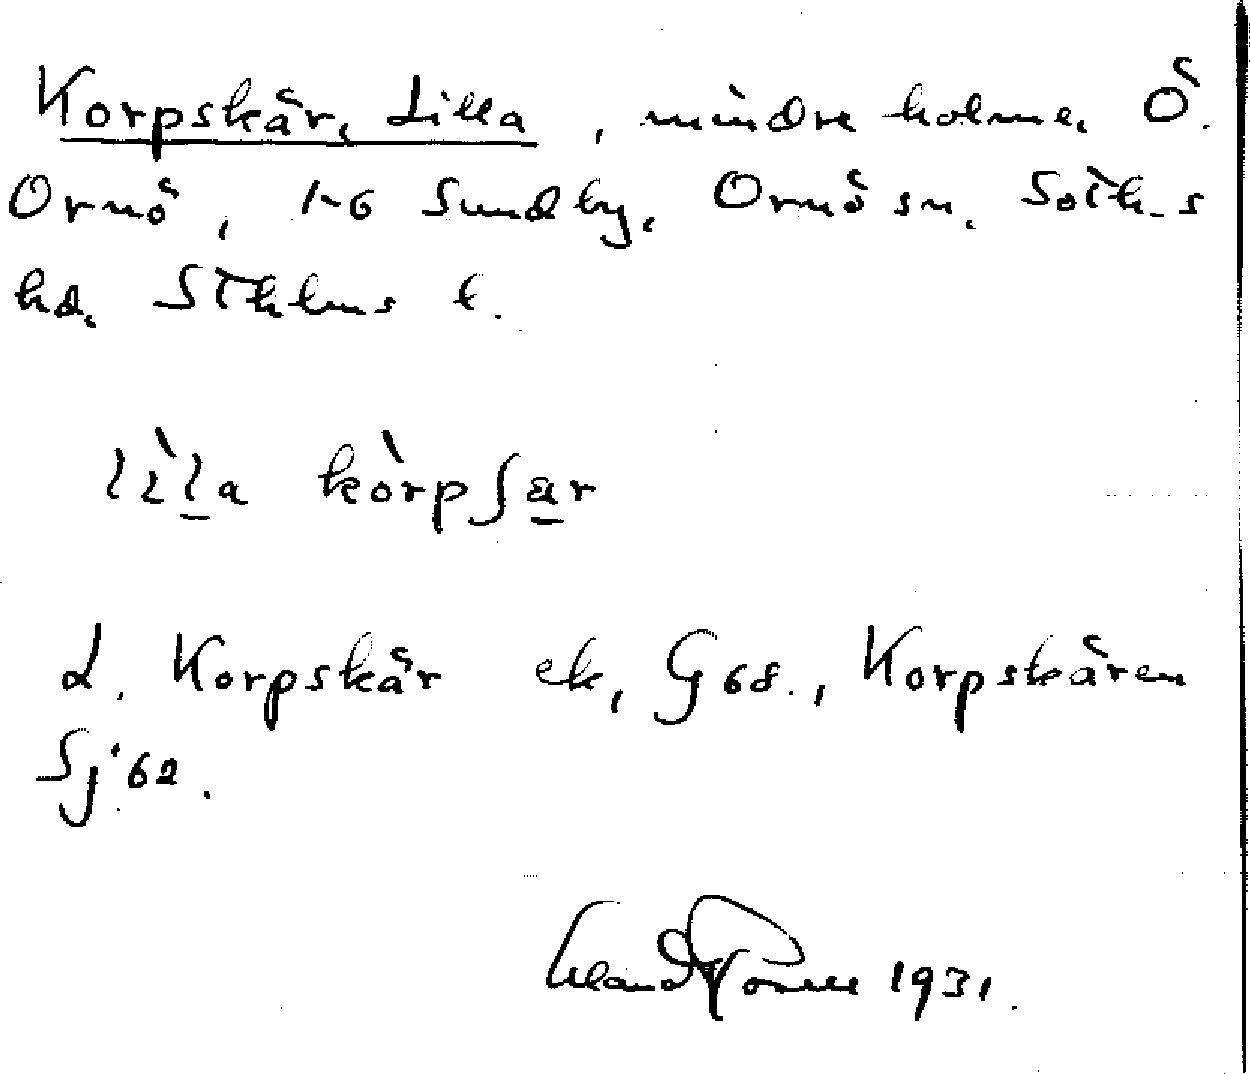 Korpskär, Lilla, mindre holme, Ö.
Ornö, 1-6 Sundby, Ornö sn. Soth-s
hd. Sthlms l.
lìla kòrpʃær
L. Korpskär ek, G 68., Korpskären
Sj '62.
1931.